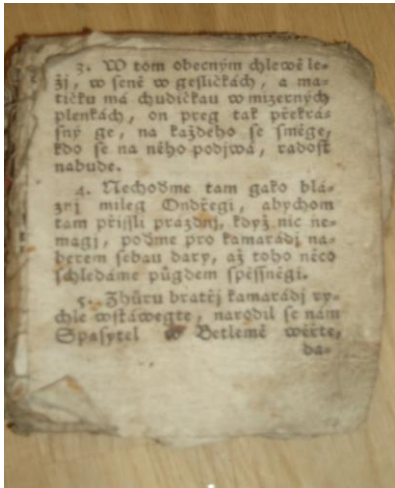 3. W tom obecným chlewě le-
žj, w seně w gesličkách, a ma-
tičku má chudičkau w mizerných
plenkách, on preg tak překrá-
sný ge, na každého se směge,
kdo se na něho podjwá, radost
nabude.
4. Nechoďme tam gako blá-
znj mileg Ondřegi, abychom
tam přissli prazdnj, když nic ne-
magj, poďme pro kamarádj na-
berem sebau dary, až toho něco
schledáme půgdem spěssněgi.
5. Zhůru bratřj kamarádj ry-
chle wstáwegte, narodil se nám
Spasytel w Betlémě wěřte,
da-